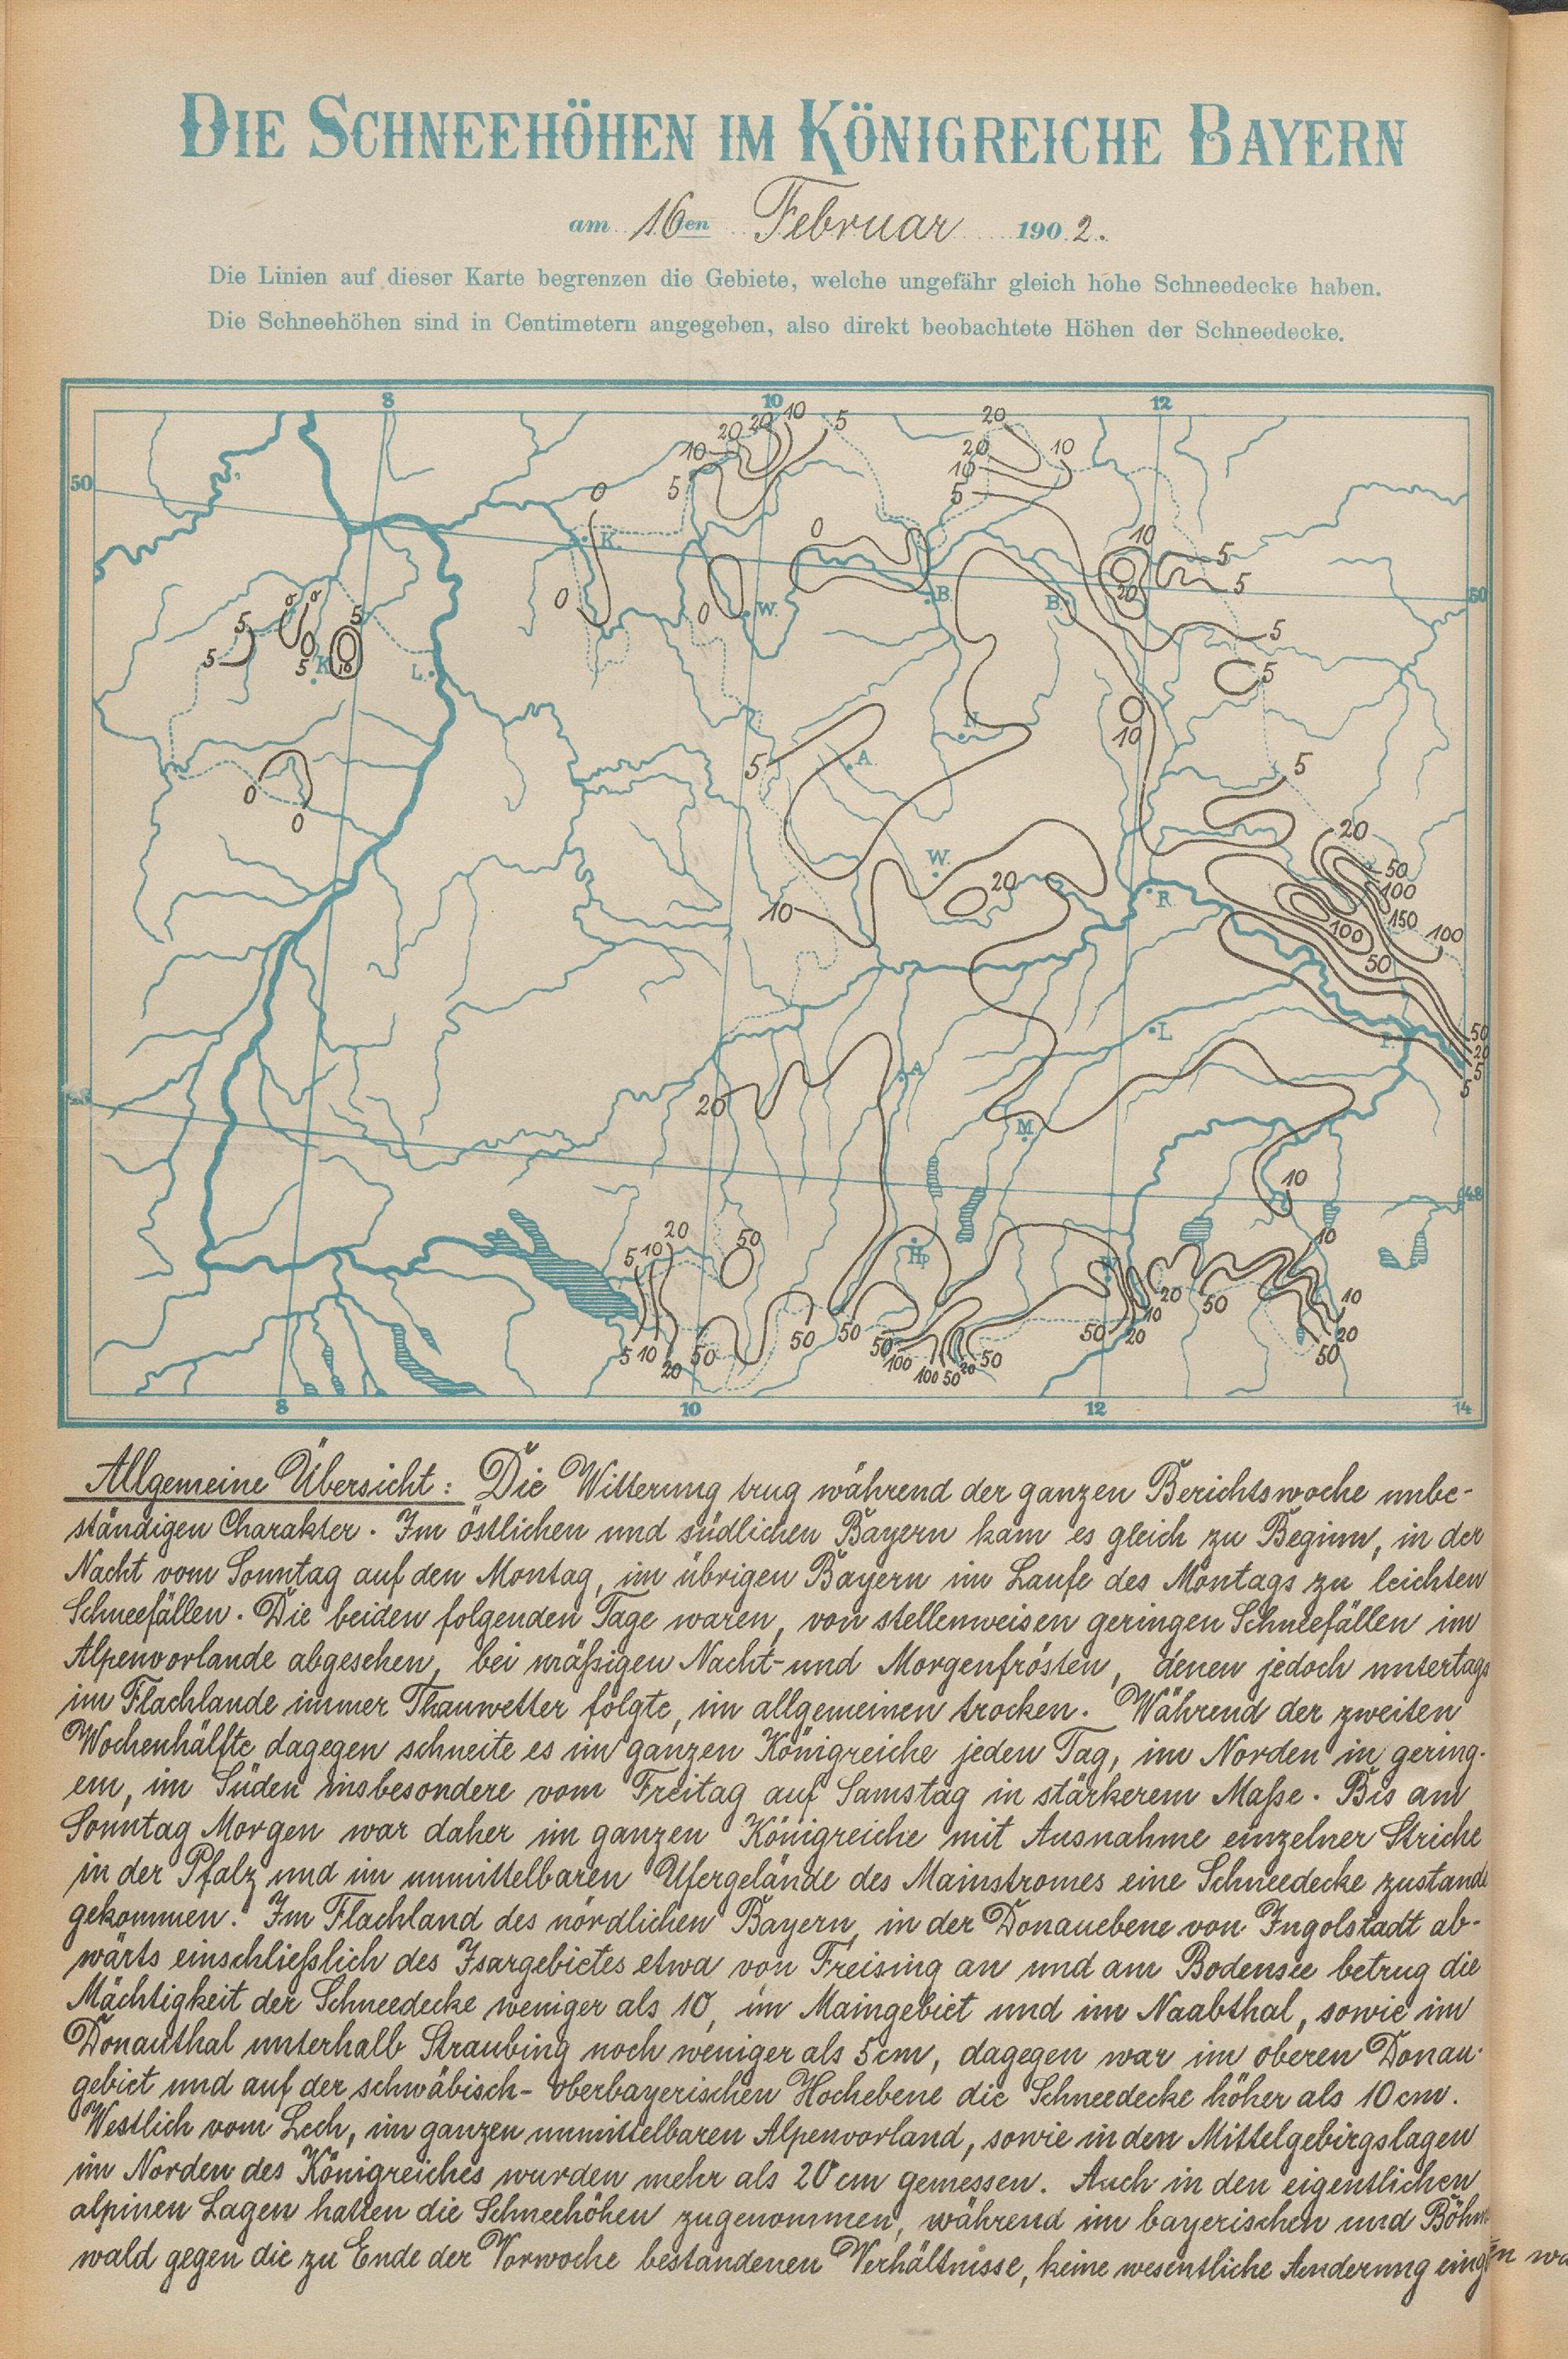 DIE SCHNEEHÖHEN IM KÖNIGREICHE BAYERN
am 16ten Februar 1902.
Die Linien auf dieser Karte begrenzen die Gebiete, welche ungefähr gleich hohe Schneedecke haben.
Die Schneehöhen sind in Centimetern angegeben, also direkt beobachtete Höhen der Schneedecke.
8 10 12
20 20 10 5 20
10 20 10
50 5 0 10 5
K. 0 10 5
0 0 W. B. B. 20 5 50
5 0 0 5 5
5 5 K 10 L. 5
N 10
5 A. 5
0 0
20
W. 20 50
10 R 100
150 100
100
50
L P. 50
A 20
20 5
48 M 5
10 48
20 50 Hp 10
5 10
20 50 10
50 50 50 10 20
5 10 20 50 50 100 100 50 20 50 20 50
8 10 12 14
Allgemeine Übersicht: Die Witterung trug während der ganzen Berichtswoche unbe-
ständigen Charakter. Im östlichen und südlichen Bayern kam es gleich zu Beginn, in der
Nacht vom Sonntag auf den Montag, im übrigen Bayern im Laufe des Montags zu leichten
Schneefällen. Die beiden folgenden Tage waren, von stellenweisen geringen Schneefällen im
Alpenvorlande abgesehen, bei mäßigen Nacht- und Morgenfrösten, denen jedoch untertags
im Flachlande immer Thauwetter folgte, im allgemeinen trocken. Während der zweiten
Wochenhälfte dagegen schneite es im ganzen Königreiche jeden Tag, im Norden in gering-
em, im Süden insbesondere vom Freitag auf Samstag in stärkerem Maße. Bis am
Sonntag Morgen war daher im ganzen Königreiche mit Ausnahme einzelner Striche
in der Pfalz und im unmittelbaren Ufergelände des Mainstromes eine Schneedecke zustande
gekommen. Im Flachland des nördlichen Bayern, in der Donauebene von Ingolstadt ab-
wärts einschließlich des Isargebietes etwa von Freising an und am Bodensee betrug die
Mächtigkeit der Schneedecke weniger als 10, im Maingebiet und im Naabthal, sowie im
Donauthal unterhalb Straubing noch weniger als 5 cm, dagegen war im oberen Donau-
gebiet und auf der schwäbisch-oberbayerischen Hochebene die Schneedecke höher als 10 cm.
Westlich vom Lech, im ganzen unmittelbaren Alpenvorland, sowie in den Mittelgebirgslagen
im Norden des Königreiches wurden mehr als 20 cm gemessen. Auch in den eigentlichen
alpinen Lagen hatten die Schneehöhen zugenommen, während im bayerischen und Böhm
wald gegen die zu Ende der Vorwoche bestandenen Verhältnisse, keine wesentliche Aenderung